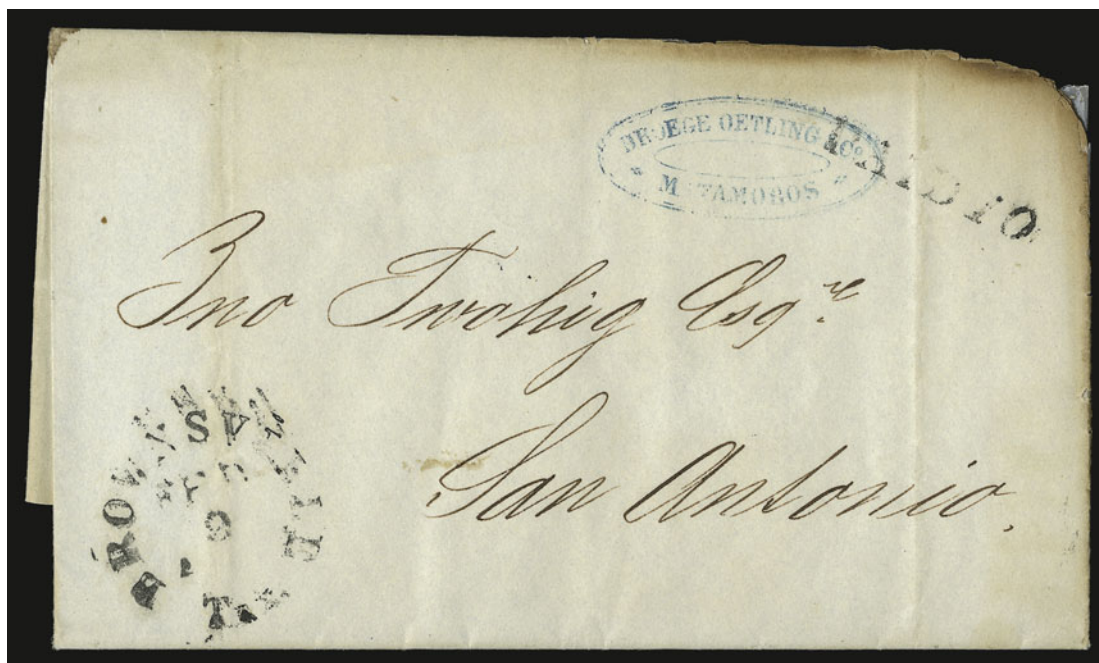 DROEGE OETLING & Co.
MATAMOROS
PAID 10
Jno Twohig Esqre.
San Antonio.
BROWNSVILLE TEXAS
FEB
9